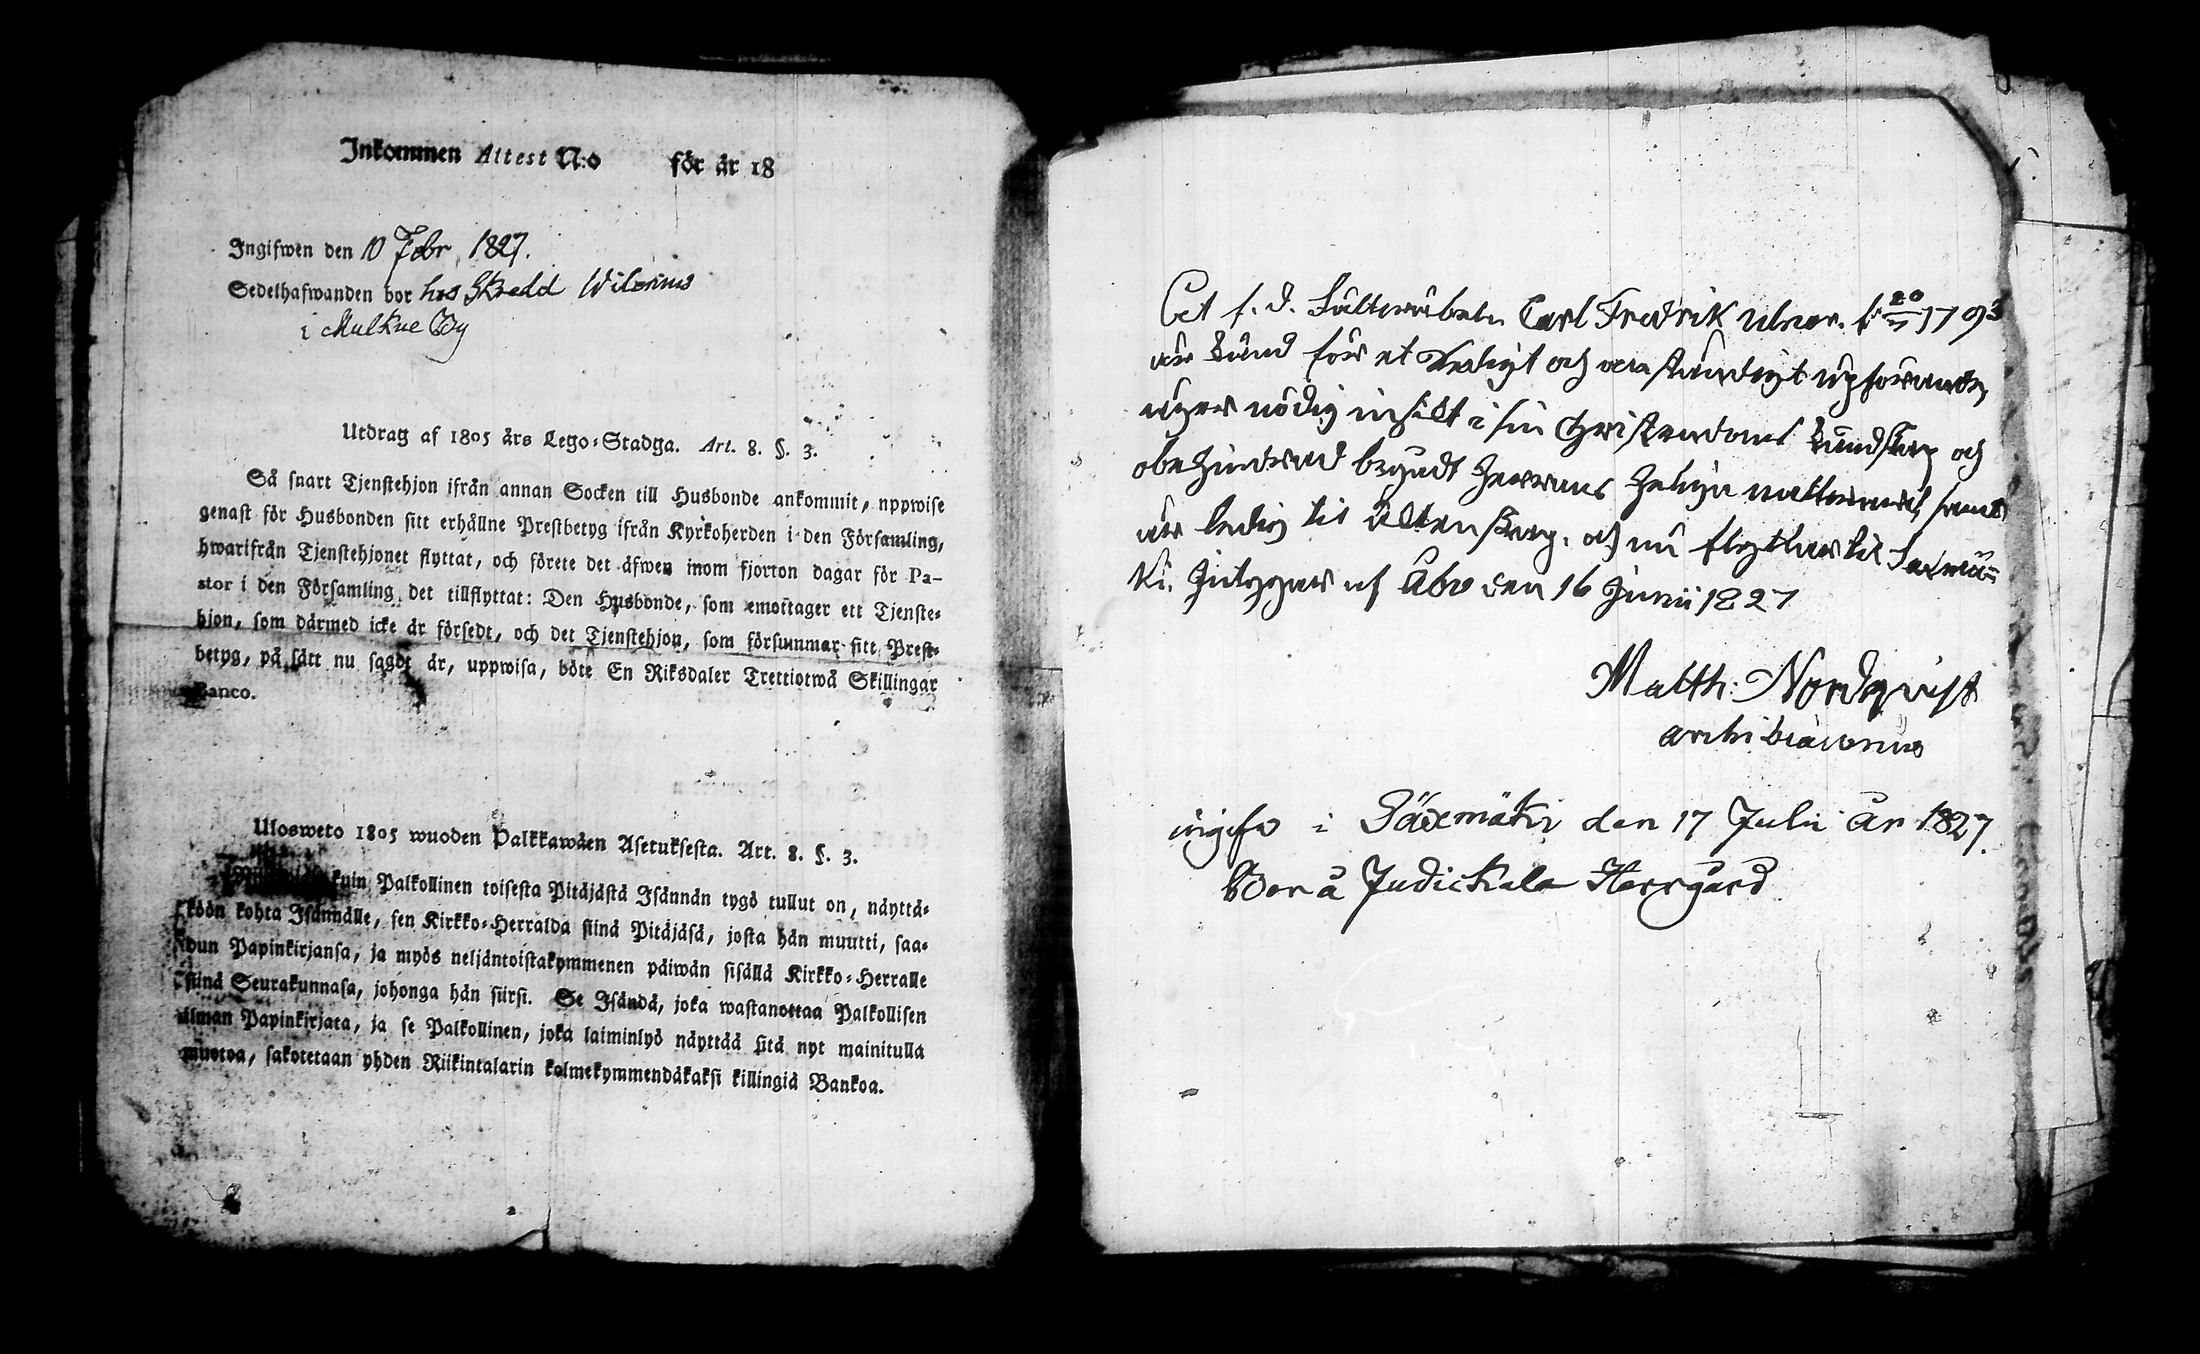 Inkommen Attest N:o för år 18
Ingifwen den 10 Febr. 1827.
Sedelhafwanden bor hos Skredd Wilenius
i Mulkue By
Utdrag af 1805 års Lego-Stadga. Art. 8. §. 3.
Så snart Tjenstehjon ifrån annan Socken till Husbonde ankommit, uppwise
genast för Husbonden sitt erhållne Prestbetyg ifrån Kyrkoherden i den Församling,
hwarifrån Tjenstehjonet flyttat, och förete det äfwen inom fjorton dagar för Pa-
stor i den Församling det tillflyttat: Den Husbonde, som emottager ett Tjenste-
hjon, som därmed icke är försedt, och det Tjenstehjon, som försummar sitt Prest-
betyg, på sätt nu sagdt är, uppwisa, böte En Riksdaler Trettiotwå Skillingar
Banco.
Ulosweto 1805 wuoden Palkkawäen Asetuksesta. Art. 8. §. 3.
kuin Palkollinen toisesta Pitäjästä Isännän tygö tullut on, näyttä-
köön kohta Isännälle, sen Kirkko-Herralda siinä Pitäjäsä, josta hän muutti, saa-
dun Papinkirjansa, ja myös neljäntoistakymmenen päiwän sisällä Kirkko-Herralle
siinä Seurakunnasa, johonga hän siirsi. Se Isändä, joka wastanottaa Palkollisen
ilman Papinkirjata, ja se Palkollinen, joka laiminlyö näyttää sitä nyt mainitulla
muotoa, sakotetaan yhden Riikintalarin kolmekymmendäkaksi killingiä Bankoa.
f. d. Carl Fredrik f. 20 1793
är känd för et redigt och anständigt upförande,
äger nödig insikt i sin Christendoms kundskap och
obehindrad begådt Herrans Heliga nattvard, samt
är ledig til äktenskap. och nu flyttar til Saxmä-
ki. Intygar af Åbo den 16 Junii 1827
Matth: Nordqvist
archi diaconus
ingifv i Säxmäki den 17 Julii år 1827.
Bor å Judickala Herrgård